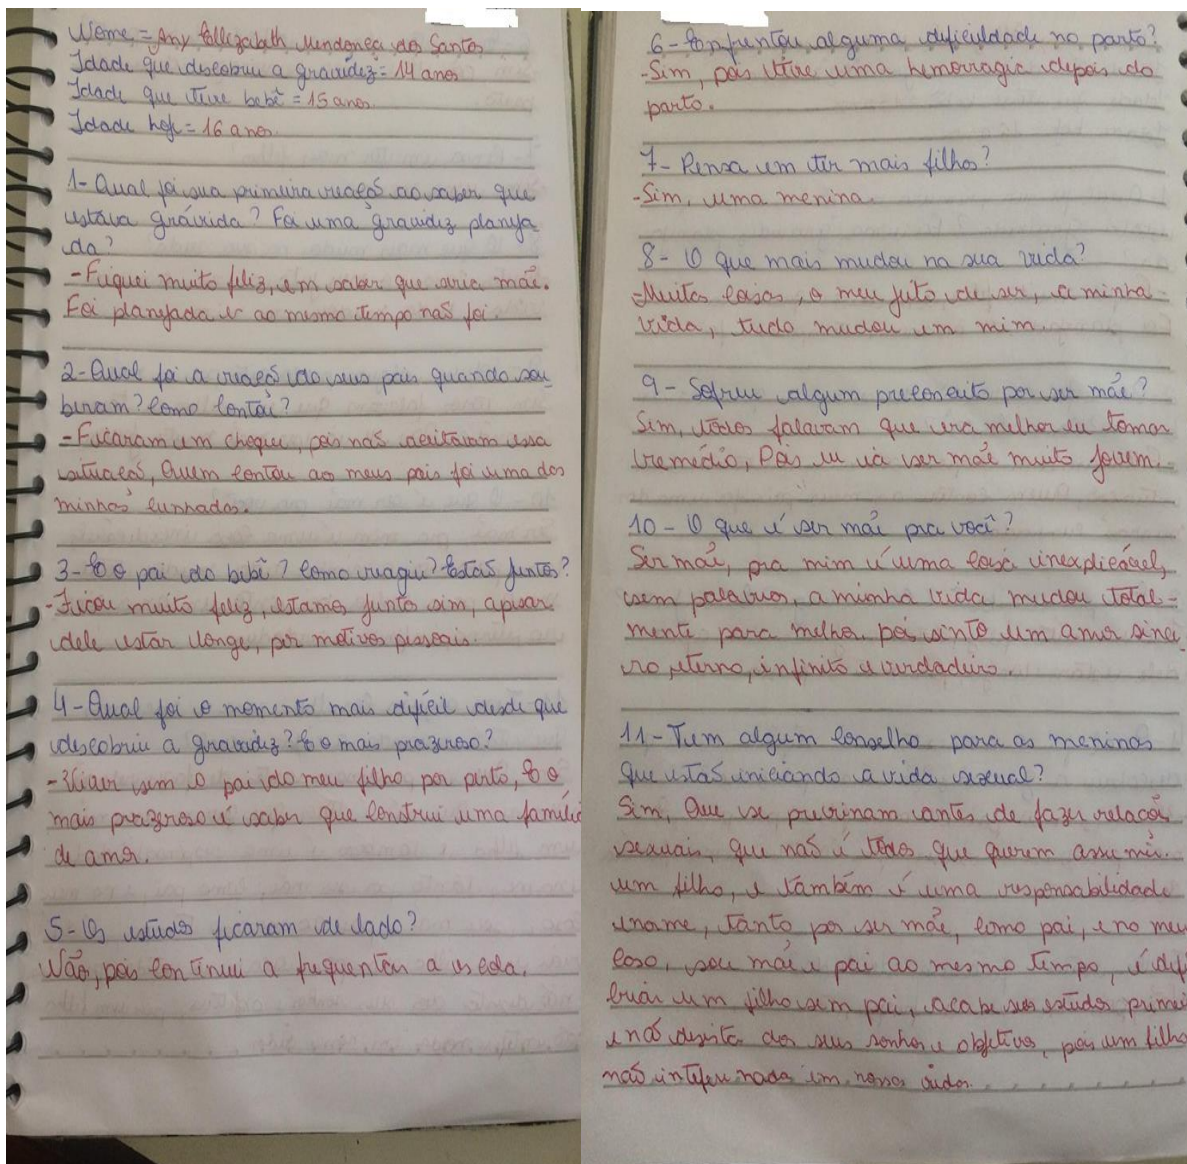 Nome = Any Ellizabeth Mendonça dos Santos
Idade que descobriu a gravidez = 14 anos
Idade que tive bebê = 15 anos
Idade hoje = 16 anos.
1- Qual foi sua primeira reação ao saber que
estava grávida? Foi uma gravidez planeja-
da?
- Fiquei muito feliz, em saber que seria mãe.
Foi planejada e ao mesmo tempo não foi.
2- Qual foi a reação do seus pais quando sou-
beram? Como contou?
- Ficaram em choque, pois não aceitavam essa
situação, Quem contou ao meus pais foi uma das
minhas cunhadas.
3- E o pai do bebê? Como reagiu? Estão juntos?
- Ficou muito feliz, estamos junto sim, apesar
dele estar longe, por motivos pessoais.
4- Qual foi o momento mais difícil desde que
descobriu a gravidez? E o mais prazeroso?
- Viver sem o pai do meu filho por perto, E o
mais prazeroso é saber que construi uma família
de amor.
5- Os estudos ficaram de lado?
Não, pois continuei a frequentar a escola.
6- Enfrentou alguma dificuldade no parto?
- Sim, pois tive uma hemorragia depois do
parto.
7- Pensa em ter mais filhos?
- Sim, uma menina.
8- O que mais mudou na sua vida?
- Muitas coisas, o meu jeito de ser, a minha
vida, tudo mudou em mim.
9- Sofreu algum preconceito por ser mãe?
Sim, todos falavam que era melhor eu tomar
remédio, Pois eu ia ser mãe muito jovem.
10- O que é ser mãe pra você?
Ser mãe, pra mim é uma coisa inexplicável,
sem palavras, a minha vida mudou total-
mente para melhor, pois sinto um amor since
ro, eterno, infinito e verdadeiro.
11- Tem algum conselho para as meninas
que estão iniciando a vida sexual?
Sim, Que se previnam antes de fazer relações
sexuais, que não é todos que querem assumir
um filho, e também é uma responsabilidade
enorme, tanto por ser mãe, como pai, e no meu
caso, sou mãe e pai ao mesmo tempo, é difí
criar um filho sem pai, acabe seus estudos primei
e não desista dos seus sonhos e objetivos, pois um filho
não interfere nada em nossas vidas.